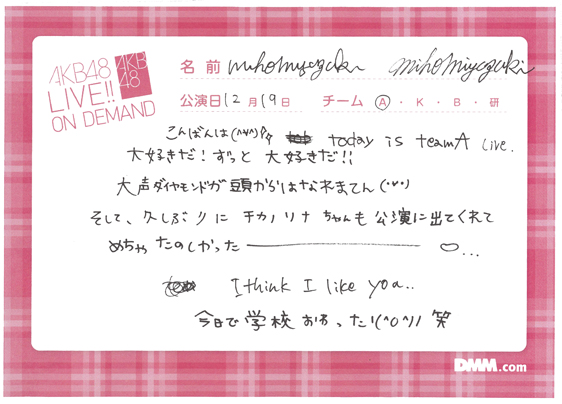 AKB48
LIVE!!
ON DEMAND
AKB
48
名前 mihomiyazaki mihomiyazaki
公演日 12月19日 チーム Ⓐ・K・B・研
こんばんは(^v^) today is teamA Live.
大好きだ!ずっと大好きだ!!
大声ダイヤモンドが頭からはなれまてん(･v･)
そして、久しぶりにチカノリナちゃんも公演に出てくれて
めちゃたのしかった ――― ♡...
I think I like you..
今日で学校おわった!(^o^)ノ 笑
DMM.com